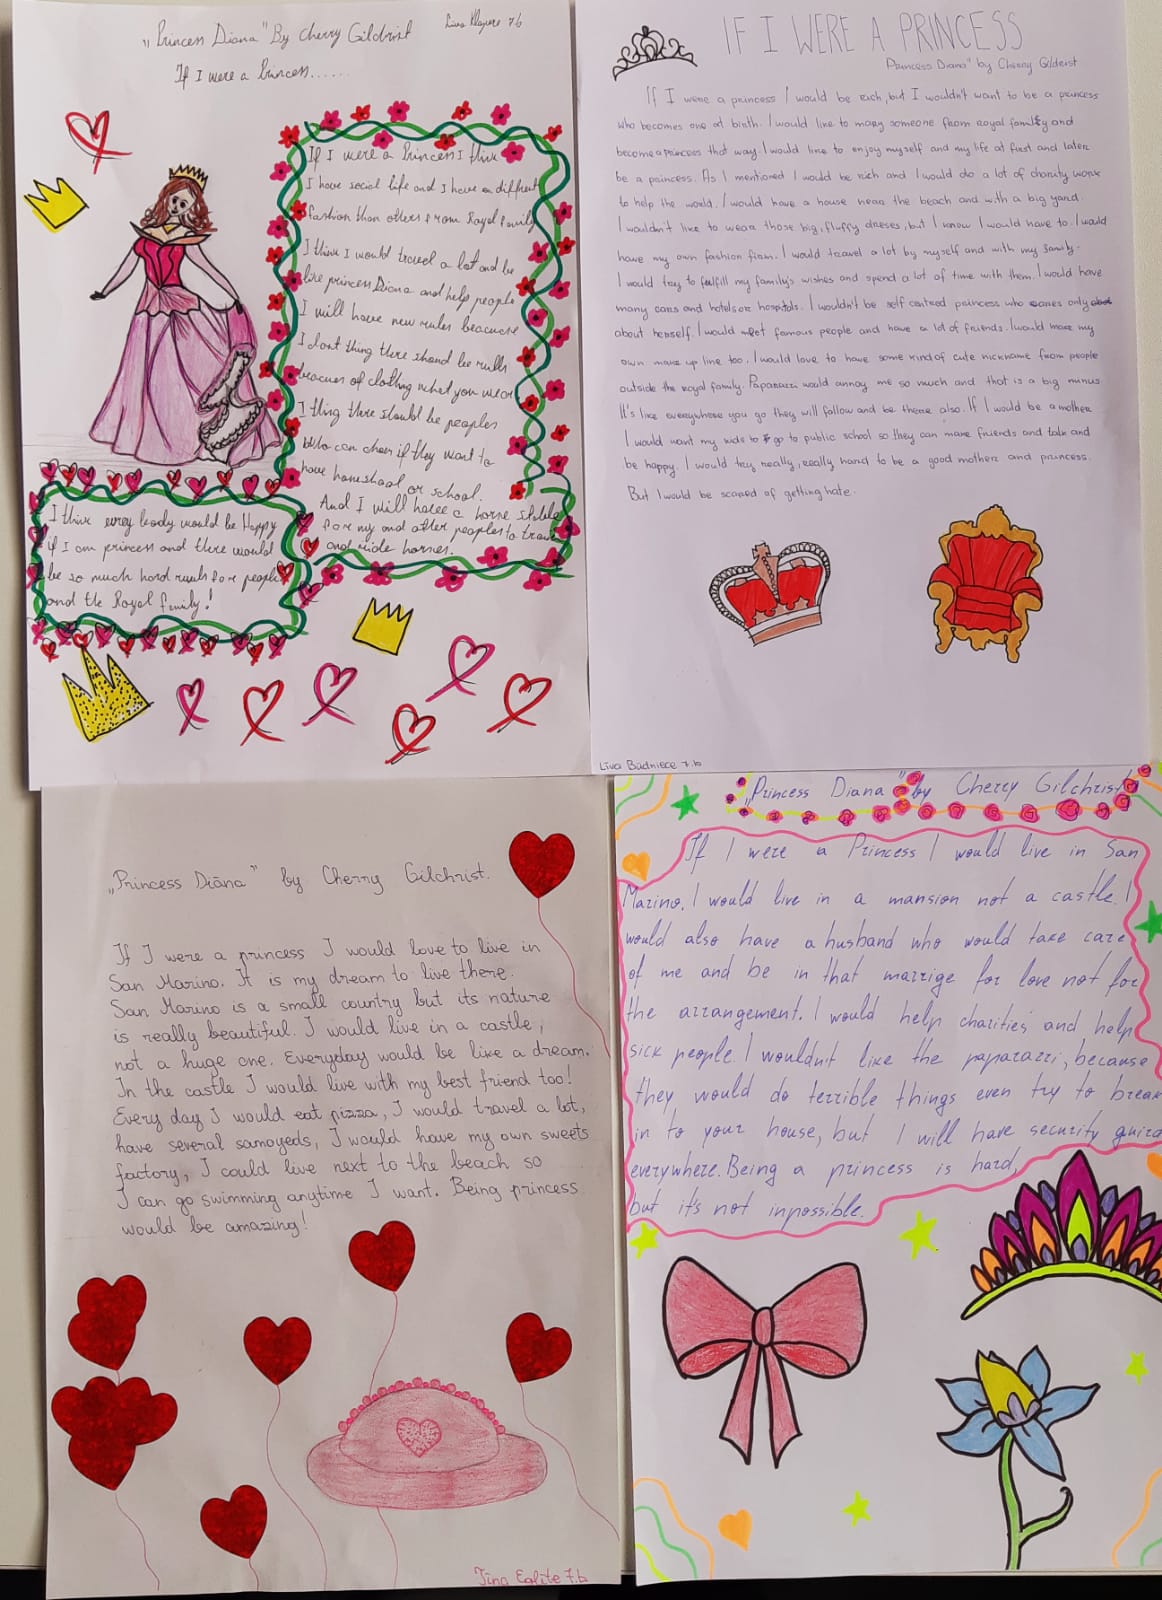 „Princess Diana" By Cherry Gildrist
7.b
If I were a Princess.......
If I were a Princess I think
I have social life and I have a different
fashion than others from Royal family
I think I would travel a lot and be
like princess Diana and help people
I will have new rules beacurse
I dont thing there shoud be rulls
beacues of clothing what you wear
I thing there should be peoples
who can chose if they want to
have homeshool or school.
And I will have a horse stable
for my and other peoples to train
and ride horses.
I think evrey beady would be Happy
if I am princess and there would
be so much hard ruuls for people
and the Royal family!
IF I WERE A PRINCESS
Princess Diana" by Cherry Gilderist
If I were a princess I would be rich, but I wouldn't want to be a princess
who becomes one at birth. I would like to marry someone from royal family and
become a princess that way. I would like to enjoy myself and my life at first and later
be a princess. As I mentioned I would be rich and I would do a lot of charity work
to help the world. I would have a house near the beach and with a big yard.
I wouldn't like to wear those big, fluffy dresses, but I know I would have to. I would
have my own fashion firm. I would travel a lot by myself and with my family.
I would try to fullfill my family's wishes and spend a lot of time with them. I would have
many cars and hotels or hospitals. I wouldn't be self centred princess who cares only
about herself. I would meet famous people and have a lot of friends. I would make my
own make up line too. I would love to have some kind of cute nickname from people
outside the royal family. Paparazzi would annoy me so much and that is a big minus.
It's like everywhere you go they will follow and be there also. If I would be a mother
I would want my kids to go to public school so they can make friends and talk and
be happy. I would try really, really hard to be a good mother and princess.
But I would be scared of getting hate.
Līva Būdniece 7.b
„Princess Diāna" by Cherry Gilchrist.
If I were a princess I would love to live in
San Marino. It is my dream to live there.
San Marino is a small country but its nature
is really beautiful. I would live in a castle,
not a huge one. Everyday would be like a dream.
In the castle I would live with my best friend too!
Every day I would eat pizza, I would travel a lot,
have several samoyeds, I would have my own sweets
factory, I could live next to the beach so
I can go swimming anytime I want. Being princess
would be amazing!
Tīna Eglīte 7.b
„Princess Diana" by Cherry Gilchrist
If I were a Princess I would live in San
Marino. I would live in a mansion not a castle. I
would also have a husband who would take care
of me and be in that marrige for love not for
the arrangement. I would help charities and help
sick people. I wouldn't like the paparazzi, because
they would do terrible things even try to break
in to your house, but I will have security guird
everywhere. Being a princess is hard,
but it's not inpossible.